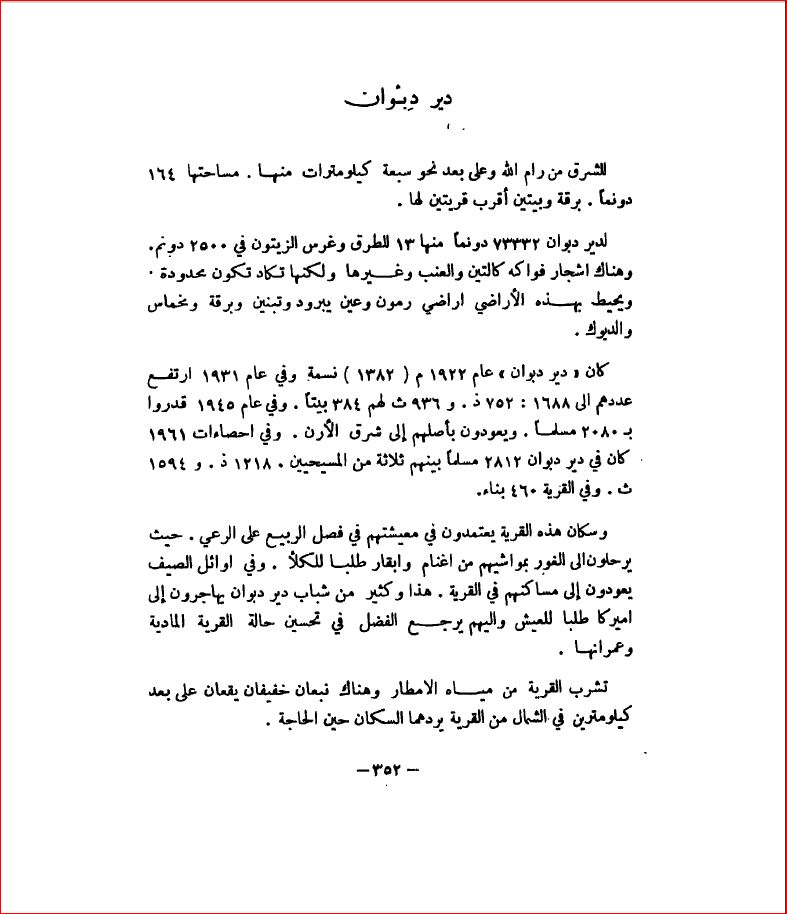 دير دِبْوان
للشرق من رام الله وعلى بعد نحو سبعة كيلومترات منهـا . مساحتها ١٦٤
دونماً . برقة وبيتين أقرب قريتين لها .
لدير دبوان ٧٣٣٣٢ دونماً منها ١٣ للطرق وغرس الزيتون في ٢٥٠٠ دونم.
وهناك اشجار فواكه كالتين والعنب وغـــيرها ولكنها تكاد تكون محدودة .
ويحيط بهـــذه الأراضي اراضي رمون وعين يبرود وتبنين وبرقة ومخماس
والديوك .
كان « دير دبوان » عام ١٩٢٢ م ( ١٣٨٢ ) نسمة وفي عام ١٩٣١ ارتفـع
عددهم الى ١٦٨٨ : ٧٥٢ ذ . و ٩٣٦ ث لهم ٣٨٤ بيتاً . وفي عام ١٩٤٥ قدروا
بـ ٢٠٨٠ مسلمـاً . ويعودون بأصلهم إلى شرق الأرن . وفي احصاءات ١٩٦١
كان في دير دبوان ٢٨١٢ مسلماً بينهم ثلاثة من المسيحيين . ١٢١٨ ذ . و ١٥٩٤
ث . وفي القرية ٤٦٠ بناء.
وسكان هذه القرية يعتمدون في معيشتهم في فصل الربيع على الرعي . حيث
يرحلون الى الغور بمواشيهم من اغنام وابقار طلبـا للكلأ . وفي اوائل الصيف
يعودون إلى مساكنهم في القرية . هذا وكثير من شباب دير دبوان يهاجرون إلى
اميركا طلبا للعيش واليهم يرجـــع الفضل في تحسين حالة القرية المادية
وعمرانهـا .
تشرب القرية من ميـــاه الامطار وهناك نبعان خفيفان يقعان على بعد
كيلومترين في الشمال من القرية يردهما السكان حين الحاجة .
— ٣٥٢ —